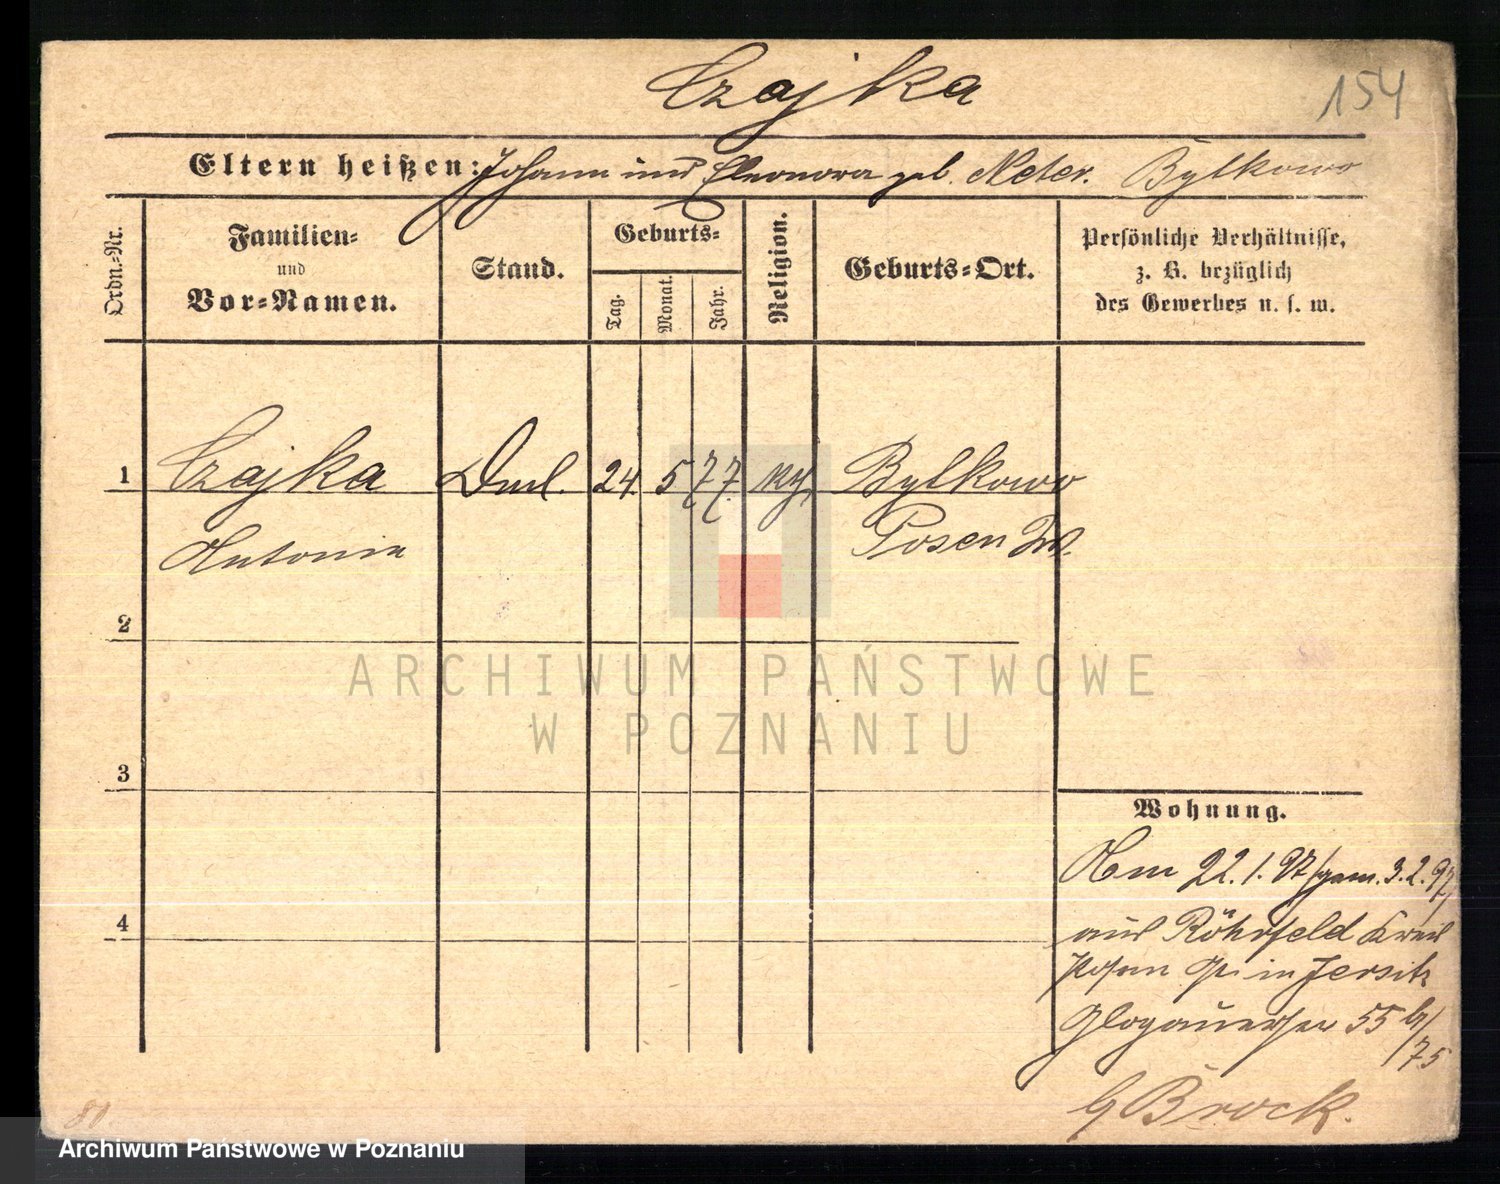 Czajka
154
Eltern heißen: Johann und Eleonora geb. Meter. Bytkowo
Ordn.-Nr.
Familien-
und
Vor-Namen.
Stand.
Geburts-
Tag.
Monat.
Jahr.
Religion.
Geburts-Ort.
Persönliche Verhältnisse,
z. B. bezüglich
des Gewerbes u. s. w.
1 Czajka 24 5 77 Bytkowo
Antonie Posen
2
3
4
Wohnung.
Am 22.1.97/gem. 3.2.97/
aus Röhrfeld Kreis
Posen in Jersitz
Glogauerstr 55 b/
/75
b Brock.
80
ARCHIWUM PAŃSTWOWE
W POZNANIU
Archiwum Państwowe w Poznaniu